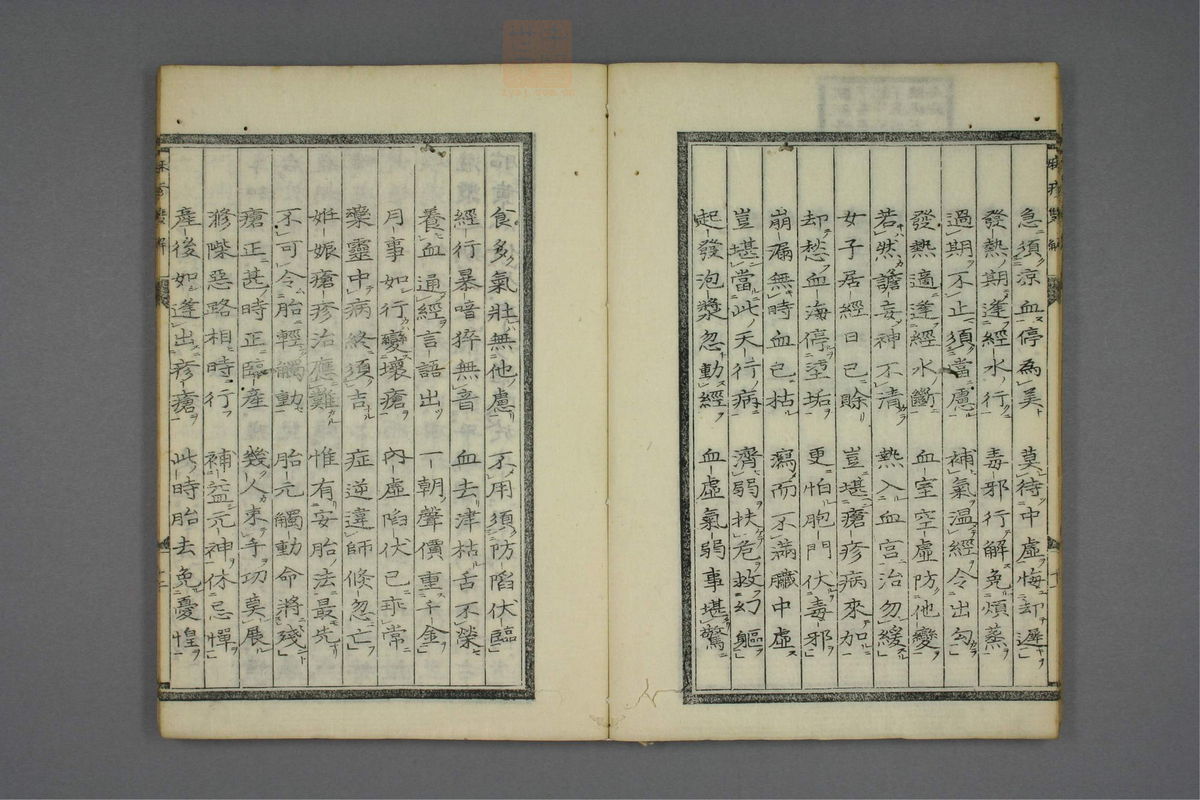 急須凉血停為美 莫待中虛悔却遲
發熱期逢經水行 毒邪行解免煩蒸
過期不止須當慮 補氣温經令出勾
發熱適逢經水斷 血室空虛防他變
若然譫妄神不清 熱入血宮治勿緩
女子居經日已賒 豈堪瘡疹病來加
却愁血海停堊垢 更怕胞門伏毒邪
崩漏無時血已枯 瀉而不滿臟中虛
豈堪當此天行病 濟弱扶危救幻軀
起發泡漿忽動經 血虛氣弱事堪驚
食多氣壯無他慮 不用須防陷伏臨
經行暴喑猝無音 血去津枯舌不榮
養血通經言語出 一朝聲價重千金
月事如行變壞瘡 內虛陷伏已乖常
藥靈中病終須吉 症逆違師倐忽亡
妊娠瘡疹治應難 惟有安胎法最先
不可令胎輕觸動 胎元觸動命將殘
瘡正甚時正臨產 幾人束手功莫展
滌除惡路相時行 補益元神休忌憚
產後如逢出疹瘡 此時胎去免憂惶